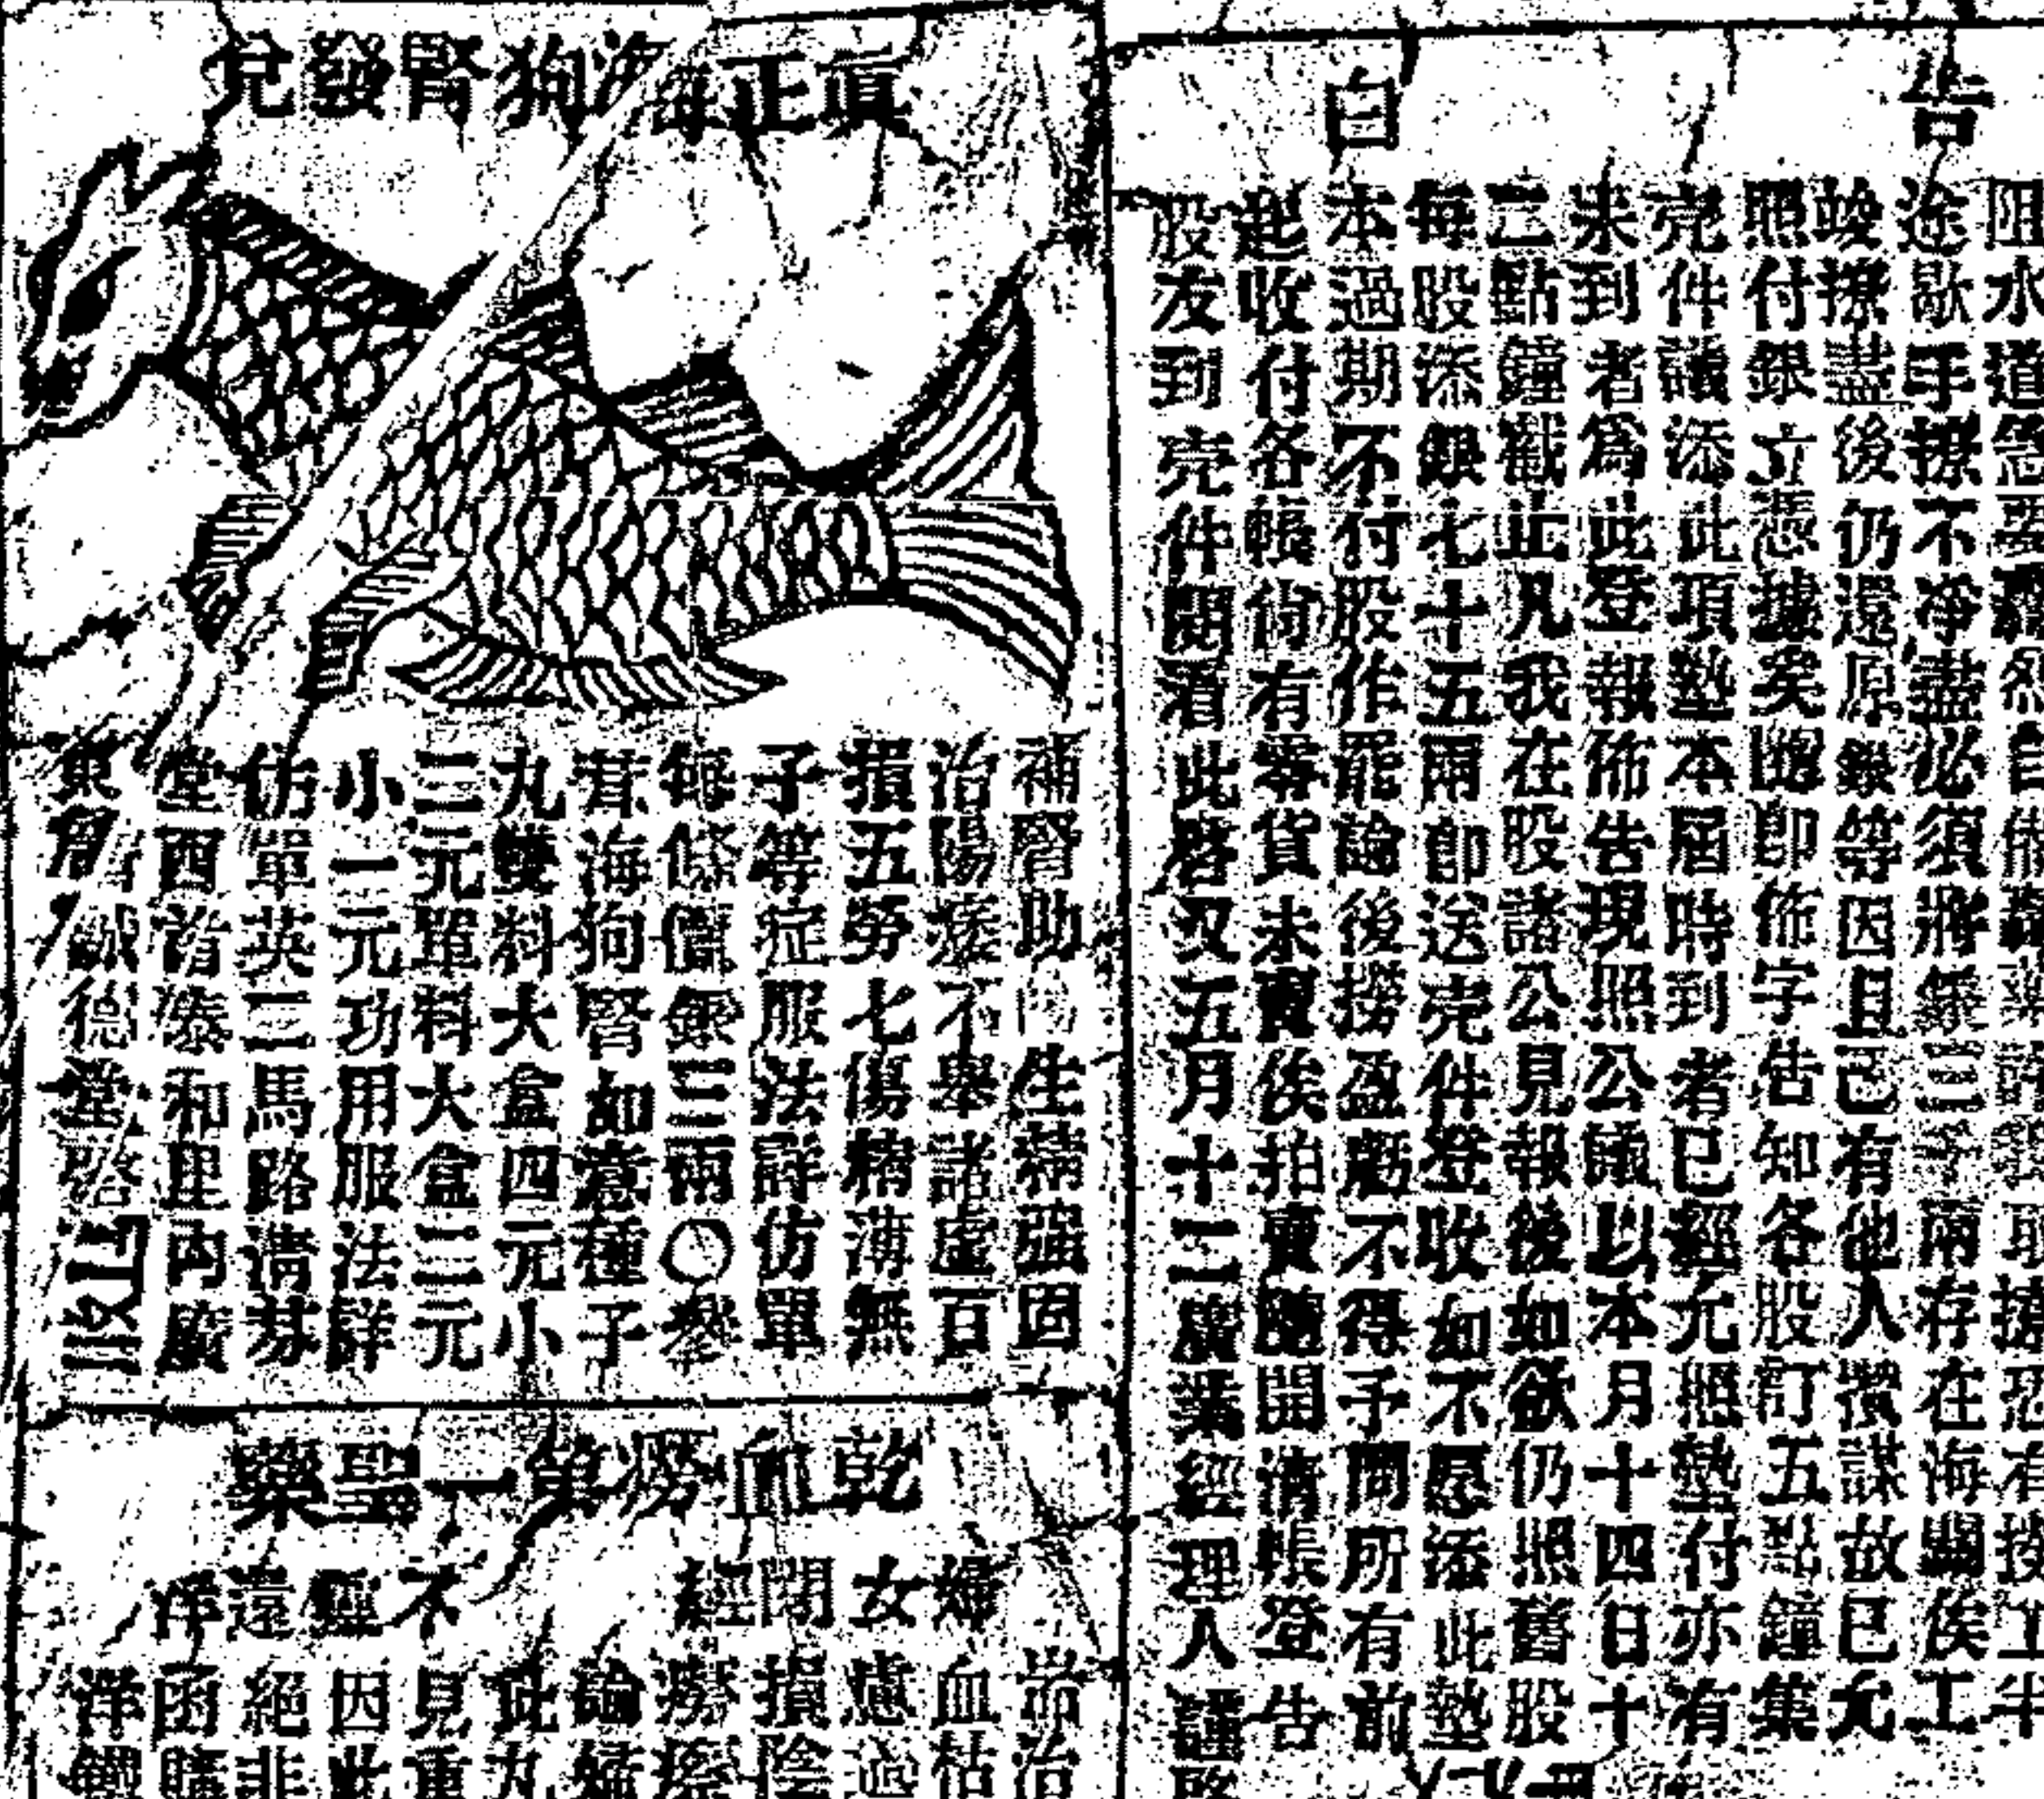 告白
阻水道
途歇手撩不凈盡必須將銀三千兩存在海關俟工
竣撩盡後仍還原銀等因且已有他人攬謀故已允
照付銀立憑據矣即佈字告知各股訂五點鐘集
売件議添此項墊本屆時到者已經允照墊付亦有
未到者為此登報佈告現照公議以本月十四日十
二點鐘截止凡我在股諸公見報後如欲仍照舊股
每股添銀七十五兩即送売件登收如不愿添此墊
本過期不付股作罷論後撈盈虧不得予問所有前
起收付各帳尚有零貨未賣俟拍賣隨開清帳登告
股友到売件開看此啓 又五月十二廣業經理人謹啓
真正海狗腎發兌
補腎助陽生精強固
治陽痿不舉諸虛百
損五勞七傷精薄無
子等症服法詳仿單
每條價銀三兩〇參
茸海狗腎如意種子
丸雙料大盒四元小
二元單料大盒二元
小一元功用服法詳
仿單英三馬路淸芬
堂西首泰和里內廣
東 誠德堂啓
乾血癆第一聖藥
婦女閉經 不 遠洋
耑治
血枯
慮
損陰
癆瘵
論婦
此丸
見重
因此
絕非
函購
洋